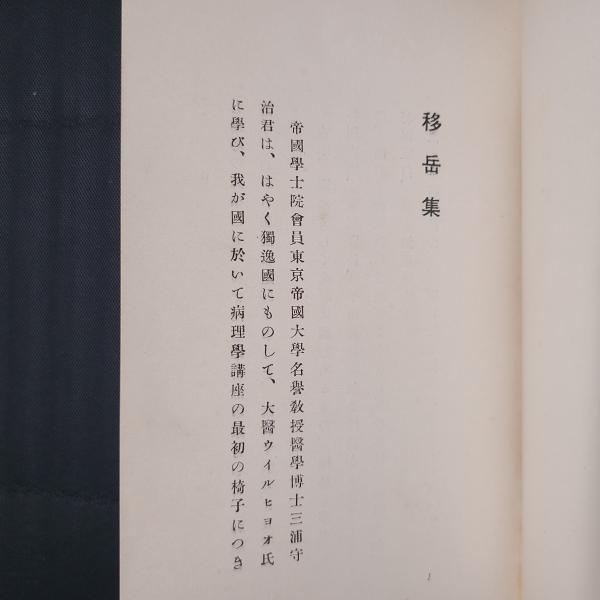 移岳集
帝國學士院會員東京帝國大學名譽敎授醫學博士三浦守
治君は、はやく獨逸國にものして、大醫ウイルヒヨオ氏
に學び、我が國に於いて病理學講座の最初の椅子につき